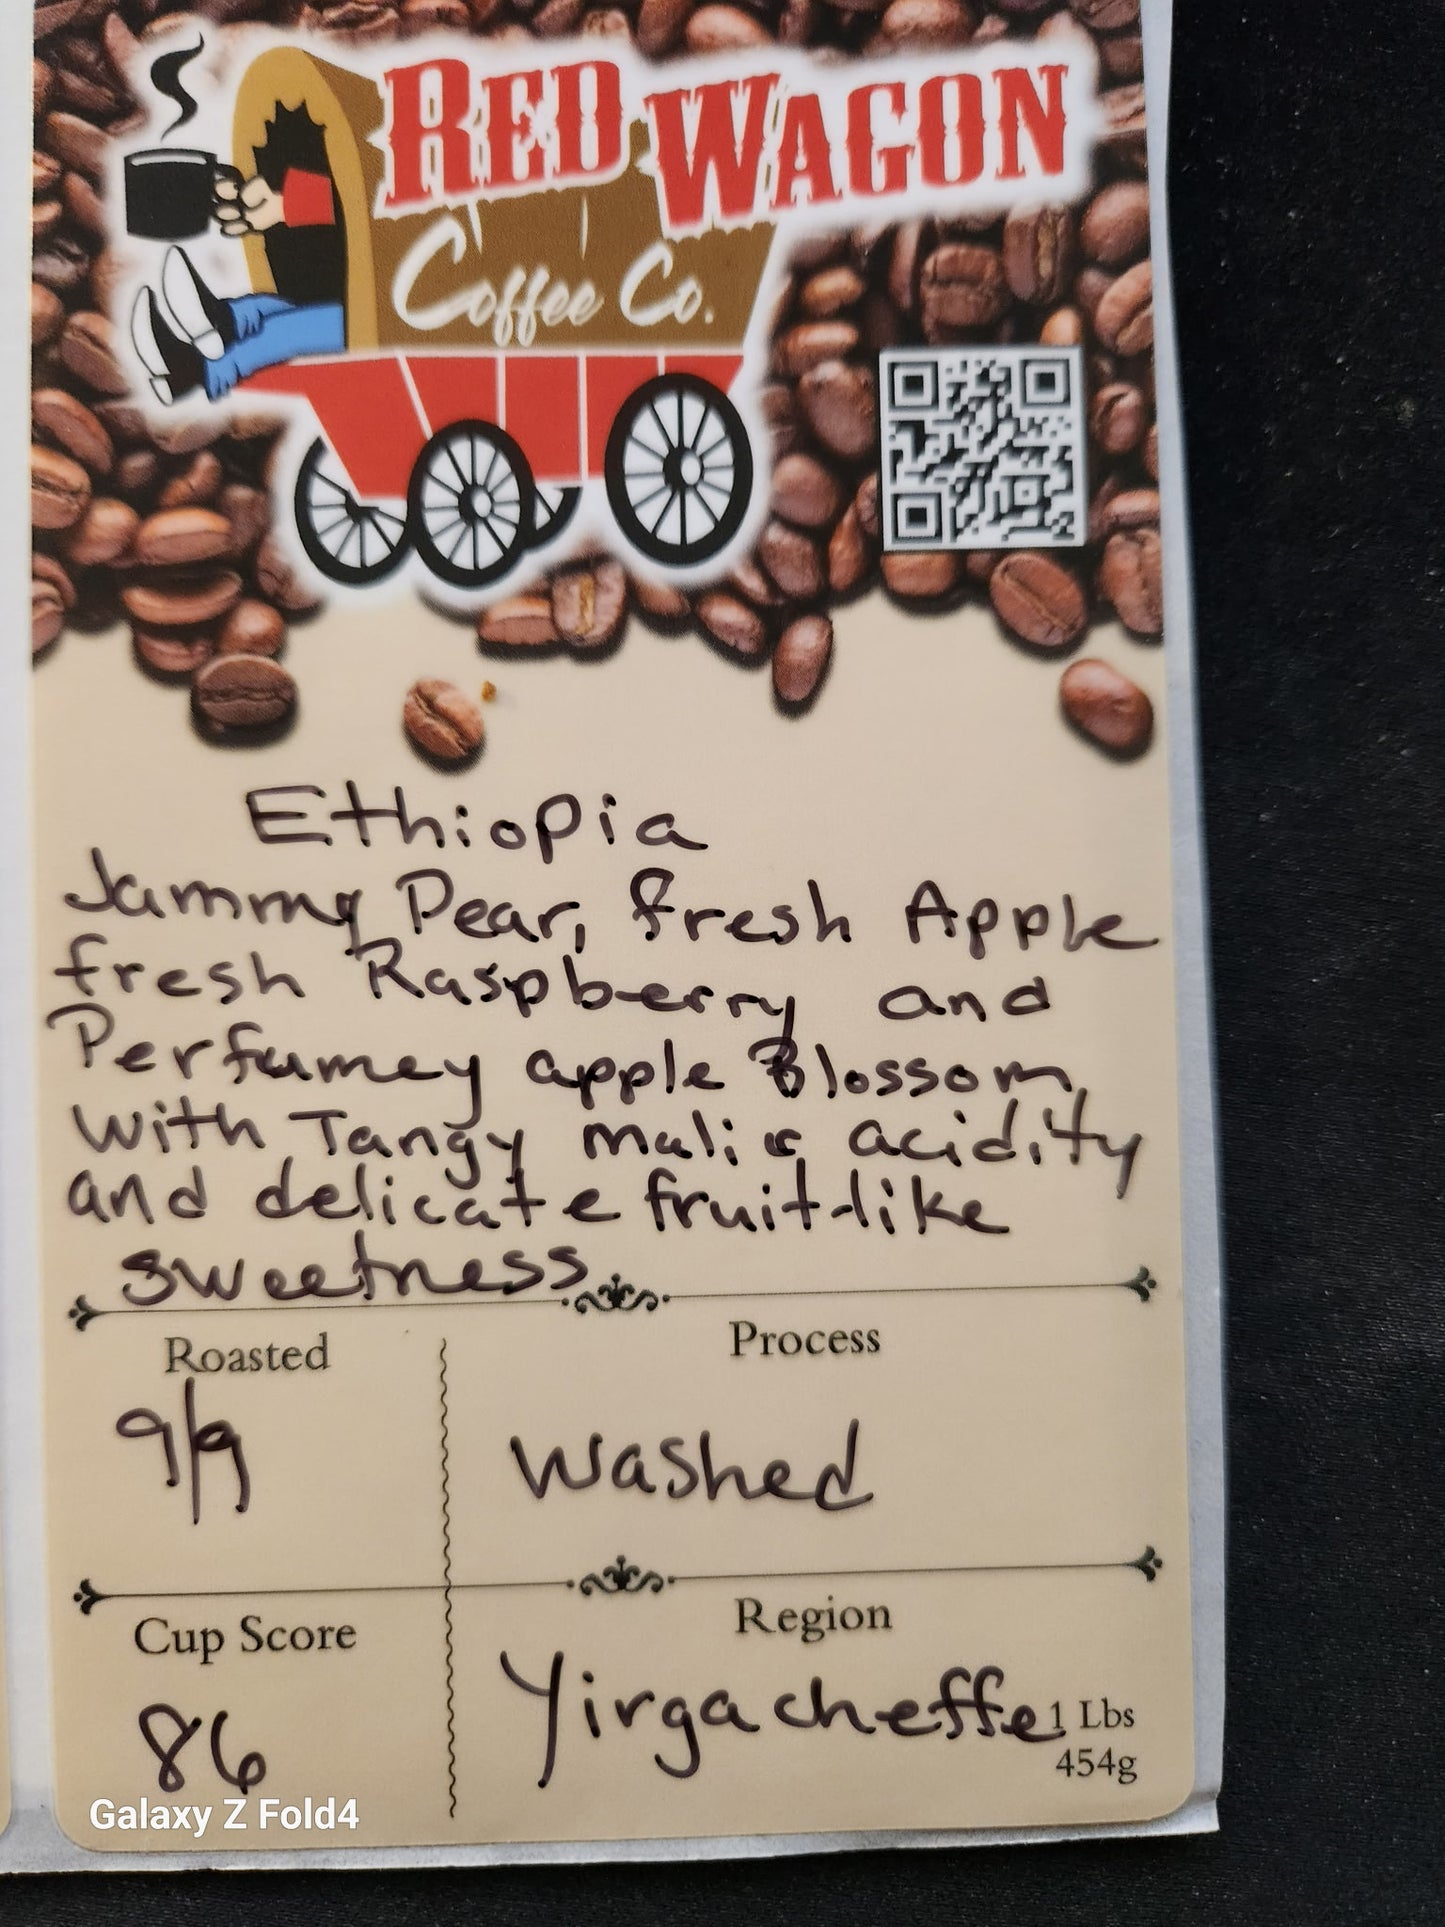 RED WAGON
Coffee Co.
Ethiopia
Jammy Pear, fresh Apple
fresh Raspberry and
Perfumey apple Blossom
with Tangy malic acidity
and delicate fruit-like
sweetness
Roasted
9/9
Process
washed
Cup Score
86
Region
Yirgacheffe
1 Lbs
454g
Galaxy Z Fold4